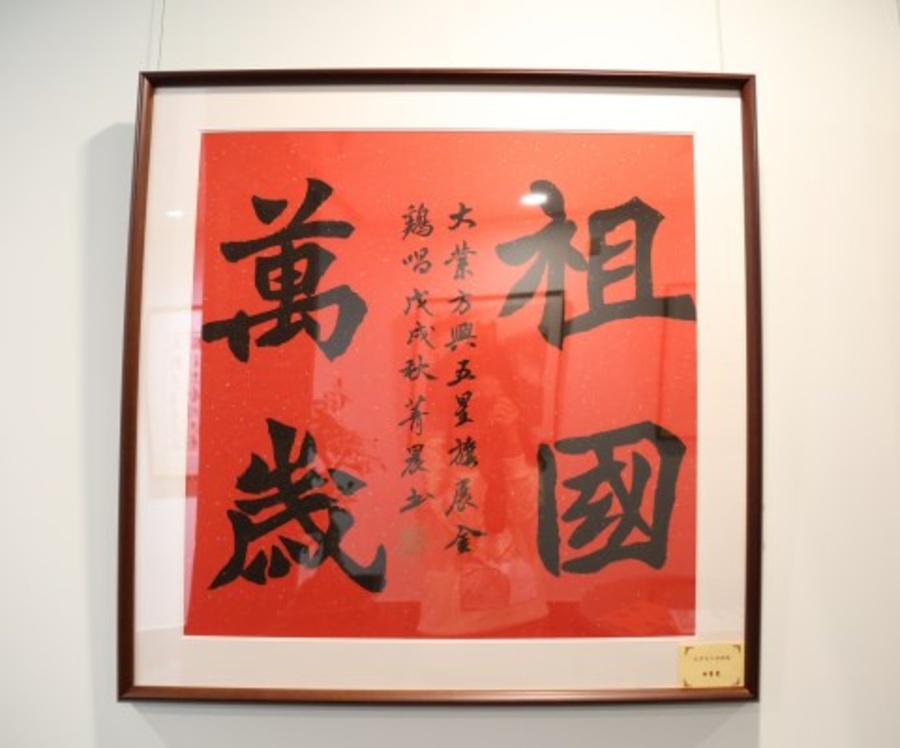 祖國
大業方興五星旗展金
鷄唱戊戌秋菁晨书
萬歲